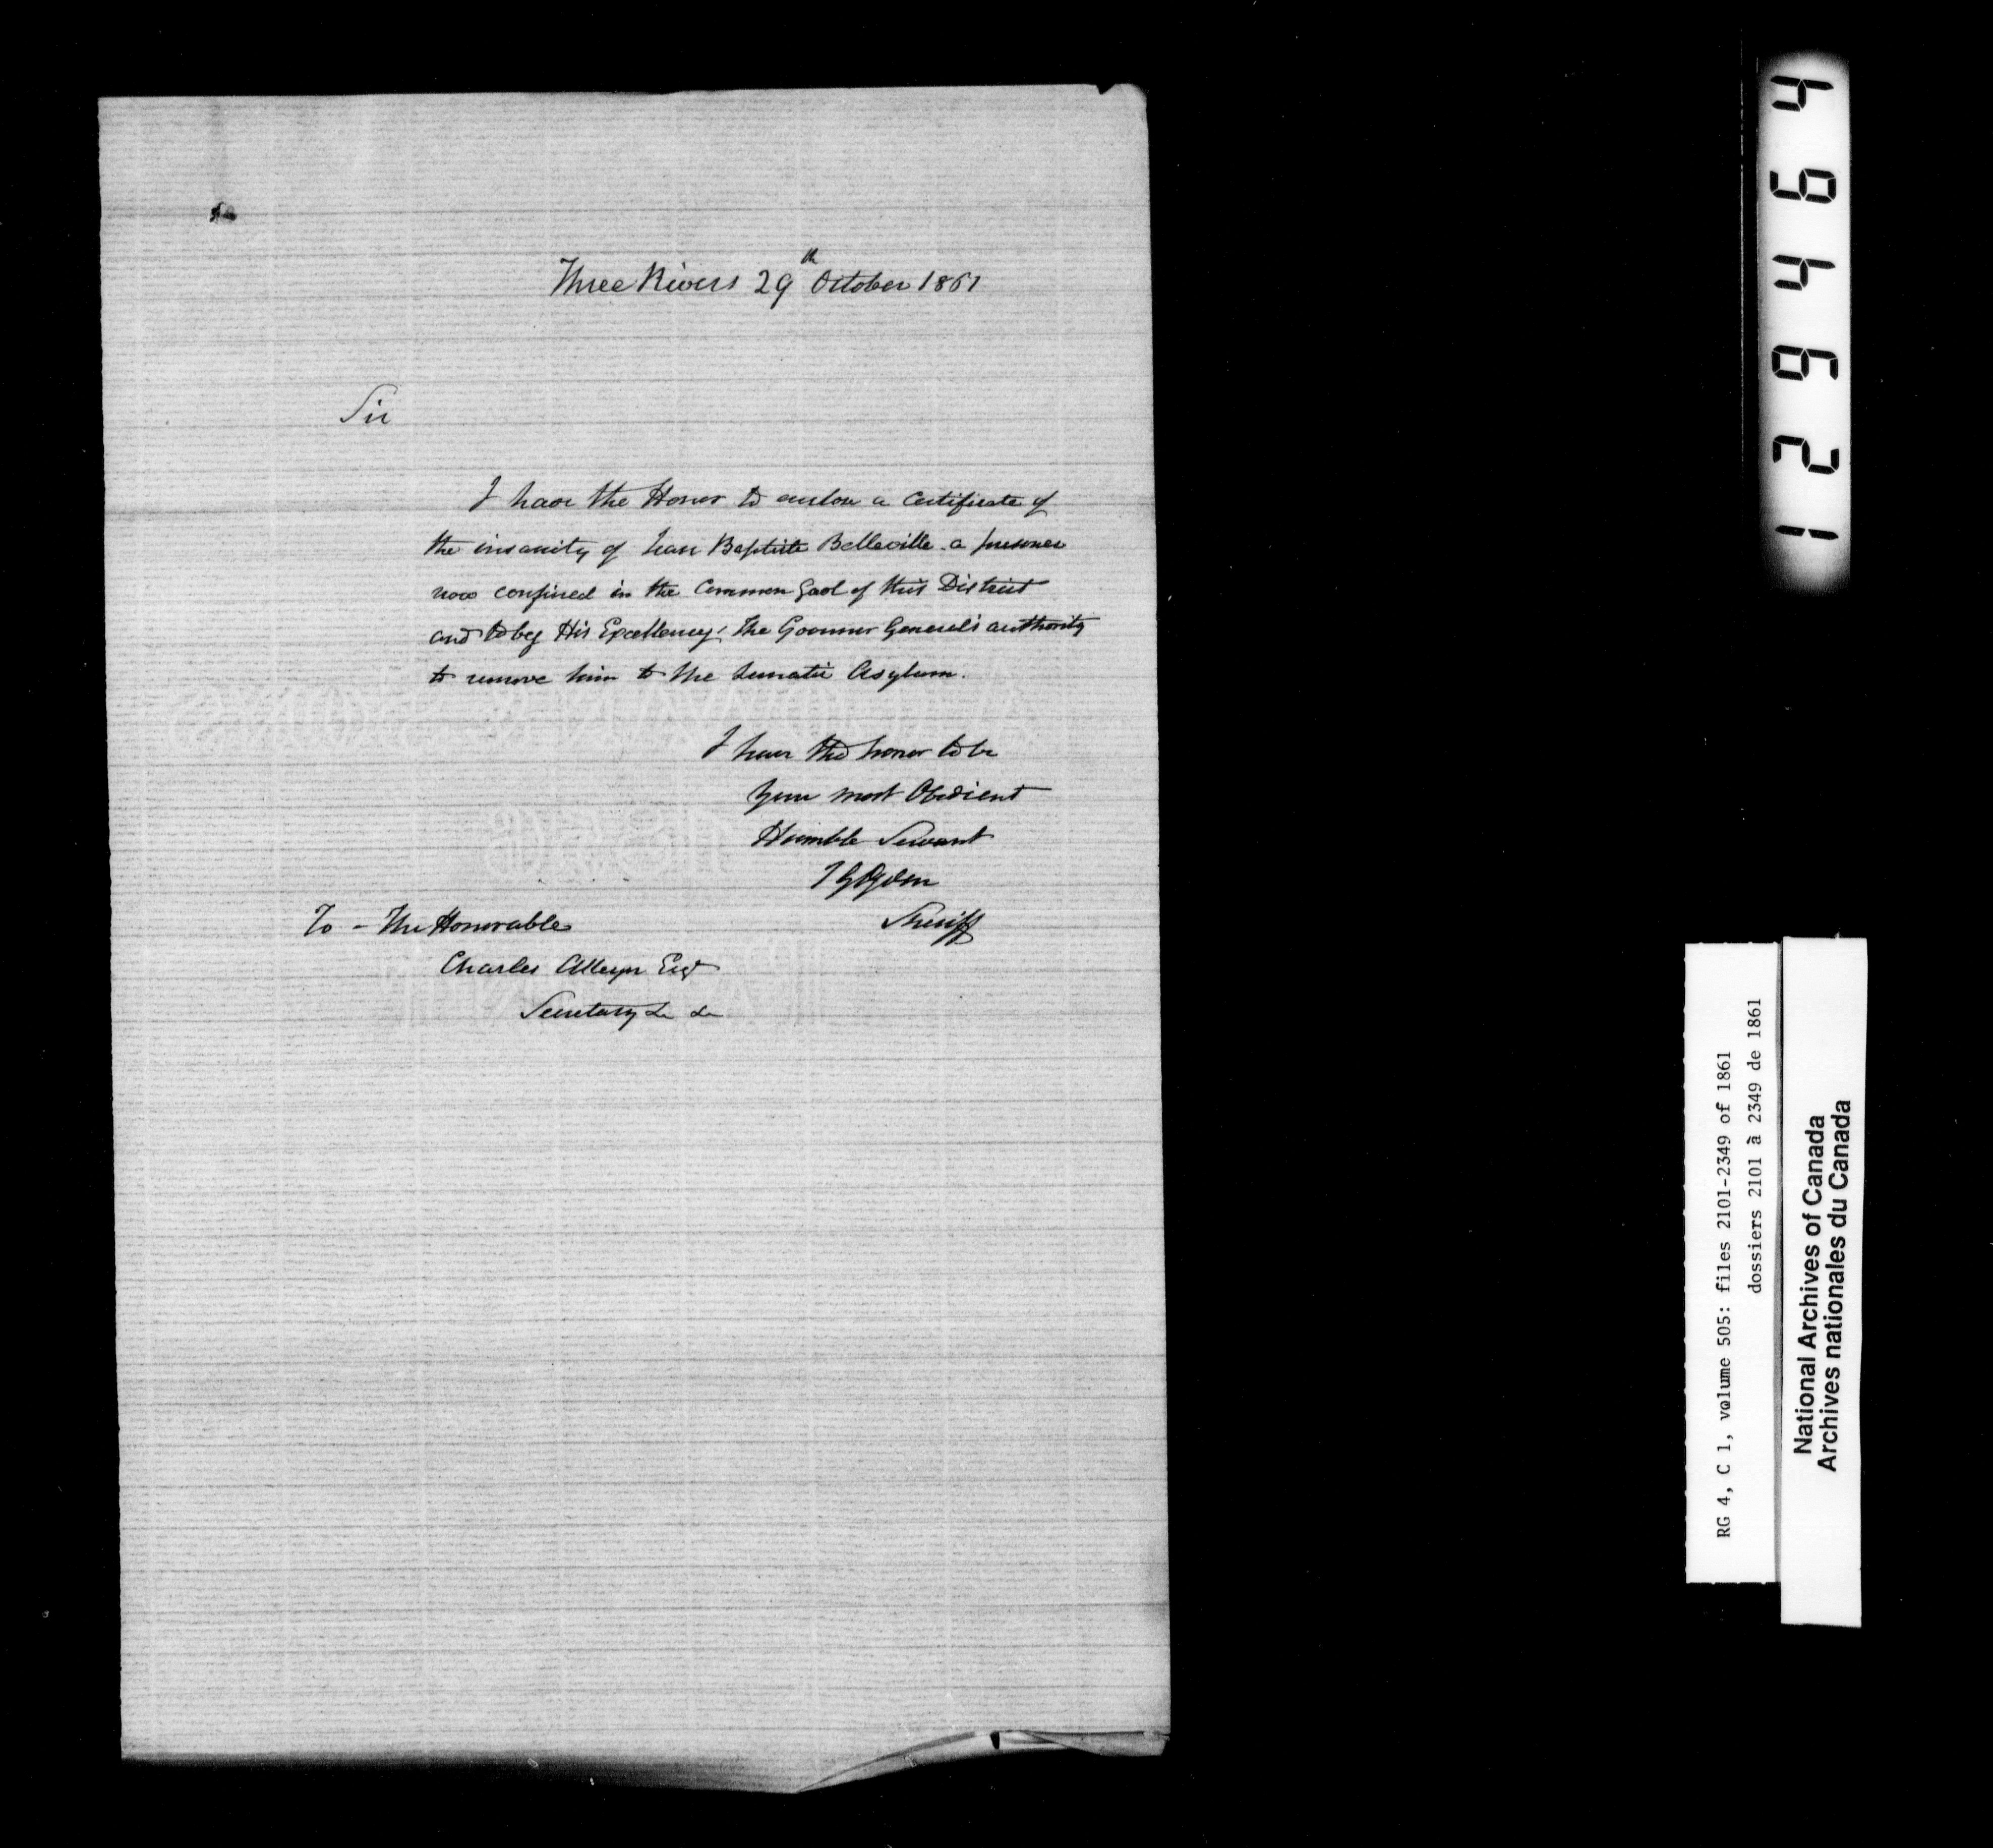 Three Rivers 29th October 1861
Sir
I have the Honor to enclose a Certificate of
the insanity of Jean Baptiste Belleville a prisoner
now confined in the Common Gaol of this District
and to beg His Excellency, the Governor General's authority
to remove him to the Lunatic Asylum.
I have the honor to be
Your most Obedient
Humble Servant
I G Ogden
Sheriff
To - The Honorable
Charles Alleyn Esqr
Secretary &c &c
129464
RG 4, C 1, volume 505: files 2101-2349 of 1861
dossiers 2101 à 2349 de 1861
National Archives of Canada
Archives nationales du Canada